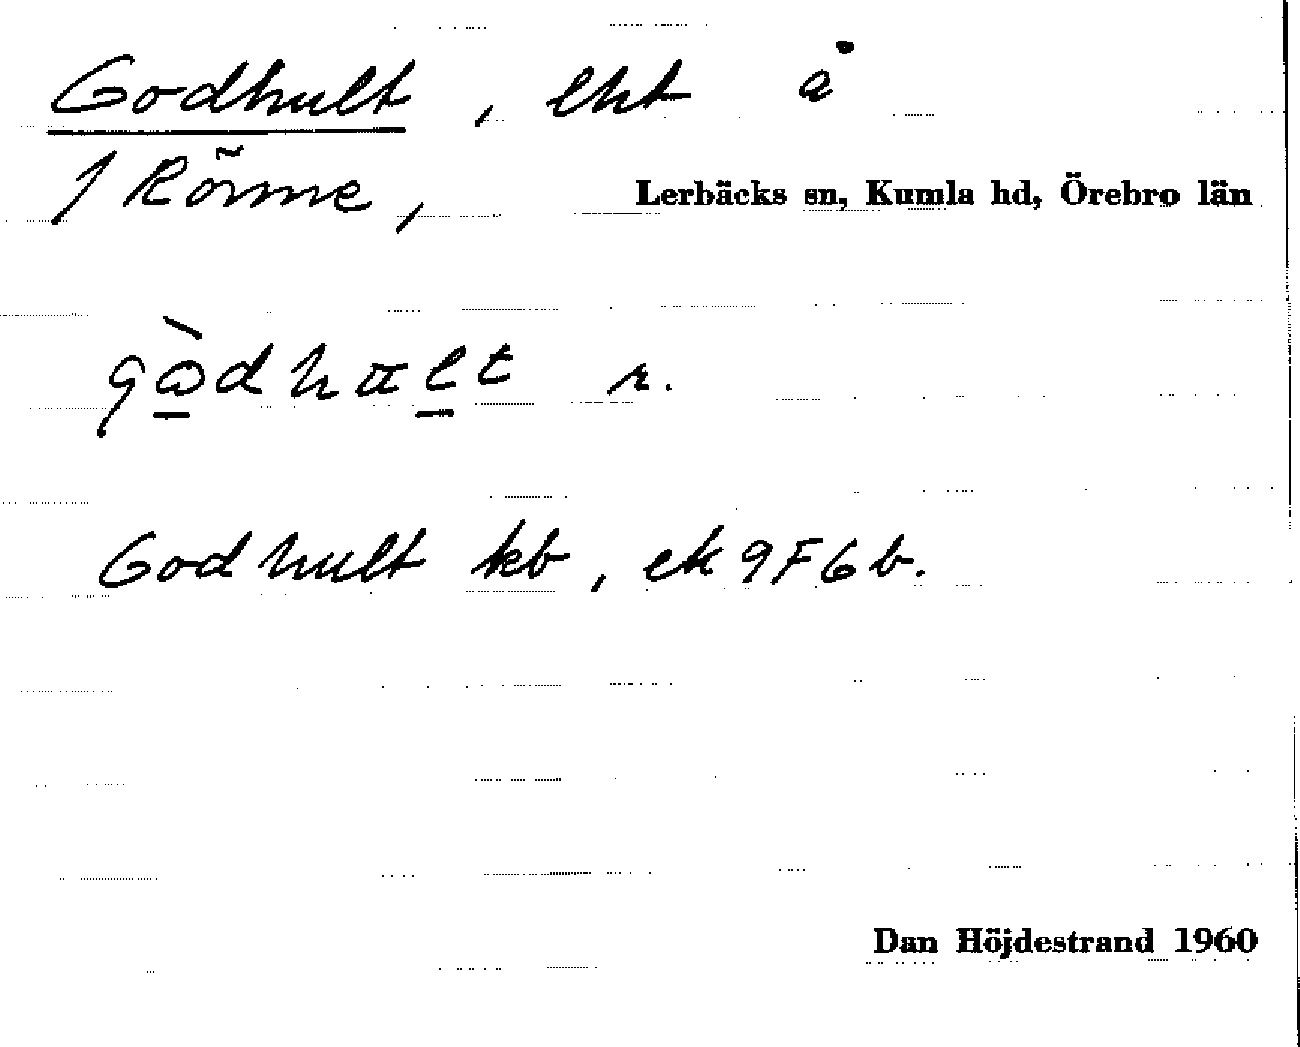 Godhult, lht å
1 Rörme, Lerbäcks sn, Kumla hd, Örebro län
gὼdhältt r.
Godhult kb, ek 9F6b.
Dan Höjdestrand 1960